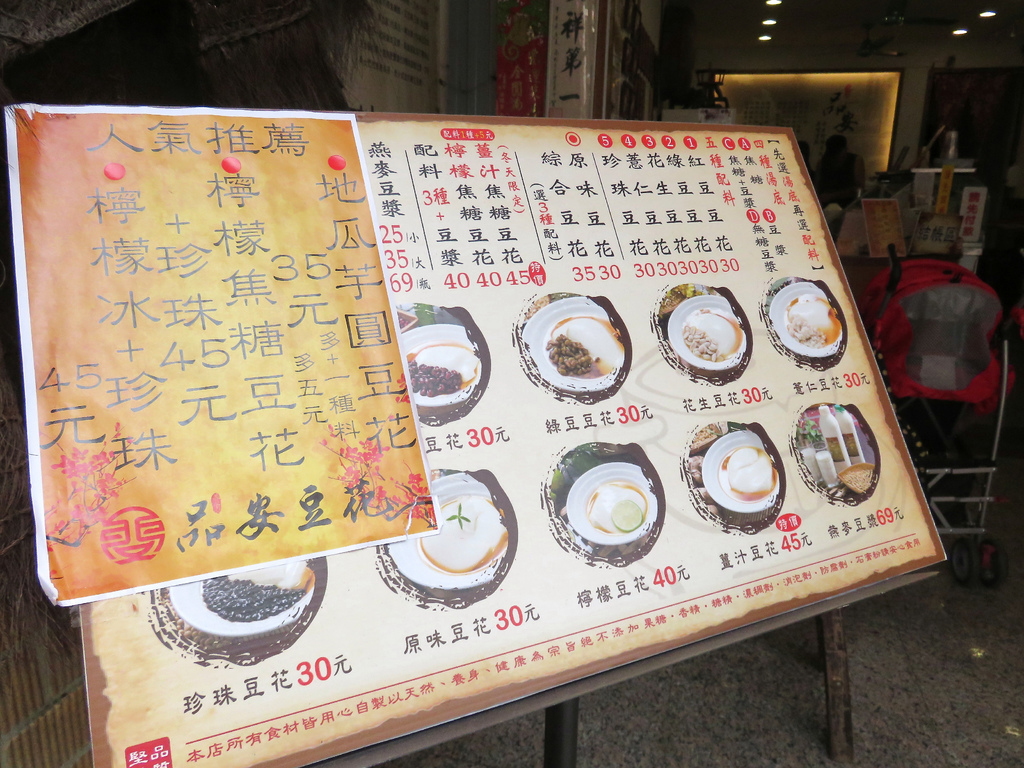 人氣推薦
地瓜芋圓豆花
35元 多+一種料 多五元
檸檬焦糖豆花
+珍珠45元
檸檬冰+珍珠
45元
品安豆花
【先選湯底再選配料】
四種湯底
A 焦糖
B 豆漿
C 焦糖+豆漿
D 無糖豆漿
五種配料
1 紅豆豆花 30
2 綠豆豆花 30
3 花生豆花 30
4 薏仁豆花 30
5 珍珠豆花 30
原味豆花 30
綜合豆花 35
(選3種配料)
(冬天限定)
薑汁焦糖豆花 45 特價
檸檬焦糖豆花 40
配料1種+5元
配料3種+豆漿 40
燕麥豆漿
25/小
35/大
69/瓶
豆花30元
綠豆豆花30元
花生豆花30元
薏仁豆花30元
珍珠豆花30元
原味豆花30元
檸檬豆花40元
特價
薑汁豆花45元
燕麥豆漿69元
本店所有食材皆用心自製以天然、養身、健康為宗旨絕不添加果糖·香精·糖精·濃稠劑·消泡劑·防腐劑·石膏粉請安心食用
品質
堅
祥第一
品安